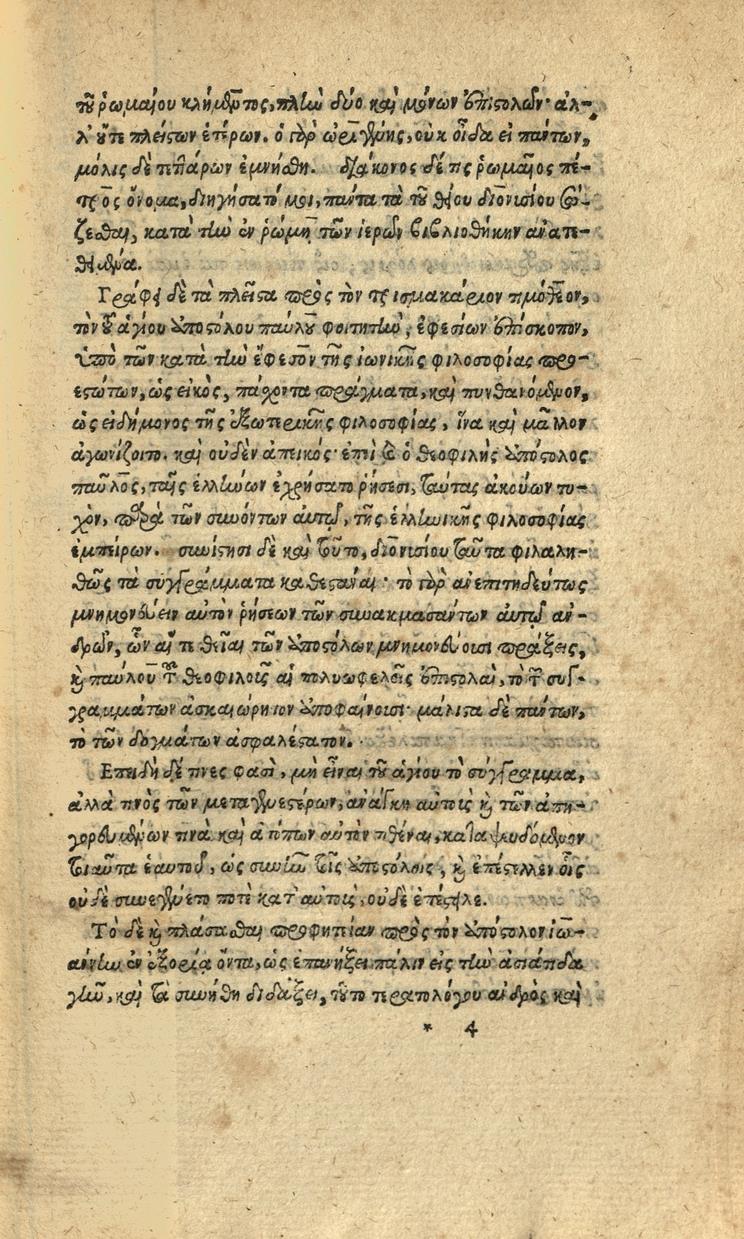 τοῦ ῥωμαίου κλήμεντος, πλὴν δύο καὶ μόνων ἐπιστολῶν· ἀλ-
λ' οὔτε πλείστων ἑτέρων. ὁ γὰρ ὠριγένης, οὐκ οἶδα εἰ πάντων,
μόλις δὲ τεττάρων ἐμνήσθη. διάκονος δέ τις ῥωμαῖος πέ-
τρος ὄνομα, διηγήσατό μοι, πάντα τὰ τοῦ θείου διονυσίου σώ-
ζεσθαι, κατὰ τὴν ἐν ῥώμῃ τῶν ἱερῶν βιβλιοθήκην ἀνατε-
θέντα.
Γράφει δὲ τὰ πλεῖστα πρὸς τὸν τρισμακάριον τιμόθεον,
τὸν τοῦ ἁγίου ἀποστόλου παύλου φοιτητὴν, ἐφεσίων ἐπίσκοπον,
ὑπὸ τῶν κατὰ τὴν ἔφεσον τῆς ἰωνικῆς φιλοσοφίας προ-
εστώτων, ὡς εἰκὸς, πάσχοντα πράγματα, καὶ πυνθανόμενον,
ὡς εἰδήμονος τῆς ἐξωτερικῆς φιλοσοφίας, ἵνα καὶ μᾶλλον
ἀγωνίζοιτο. καὶ οὐδὲν ἀπεικός· ἐπεὶ καὶ ὁ θεοφιλὴς ἀπόστολος
παῦλος, ταῖς ἑλλήνων ἐχρήσατο ῥήσεσι, ταύτας ἀκούων τυ-
χὸν, παρὰ τῶν συνόντων αὐτῷ, τῆς ἑλληνικῆς φιλοσοφίας
ἐμπείρων. συνίστησι δὲ καὶ τοῦτο, διονυσίου ταῦτα φιλαλη-
θῶς τὰ συγγράμματα καθεστάναι· τὸ γὰρ ἀνεπιτηδεύτως
μνημονεύειν αὐτὸν ῥήσεων τῶν συνακμασάντων αὐτῷ ἀν-
δρῶν, ὧν αἵ τε θεῖαι τῶν ἀποστόλων μνημονεύουσι πράξεις,
καὶ παύλου τοῦ θεοφιλοῦς αἱ πολυωφελεῖς ἐπιστολαὶ, τὸ τῶν συγ-
γραμμάτων ἀσκαιώρητον ἀποφαίνουσι· μάλιστα δὲ πάντων,
τὸ τῶν δογμάτων ἀσφαλέστατον.
Ἐπειδὴ δέ τινες φασὶ, μὴ εἶναι τοῦ ἁγίου τὸ σύγγραμμα,
ἀλλὰ τινὸς τῶν μεταγενεστέρων, ἀνάγκη αὐτοὺς καὶ τῶν ἀπη-
γορευμένων τινὰ καὶ ἀτόπων αὐτὸν τιθέναι, καταψευδόμενον
τοιαῦτα ἑαυτοῦ, ὡς συνὼν τοῖς ἀποστόλοις, καὶ ἐπέστελλεν οἷς
οὐδὲ συνεγένετο ποτὲ κατ' αὐτοὺς, οὐδὲ ἐπέστειλε.
Τὸ δὲ καὶ πλάσασθαι προφητείαν πρὸς τὸν ἀπόστολον ἰω-
άννην ἐν ἐξορίᾳ ὄντα, ὡς ἐπανήξει πάλιν εἰς τὴν ἀσιάτιδα
γῆν, καὶ τὰ συνήθη διδάξει, τοῦτο τερατολόγου ἀνδρὸς καὶ
* 4